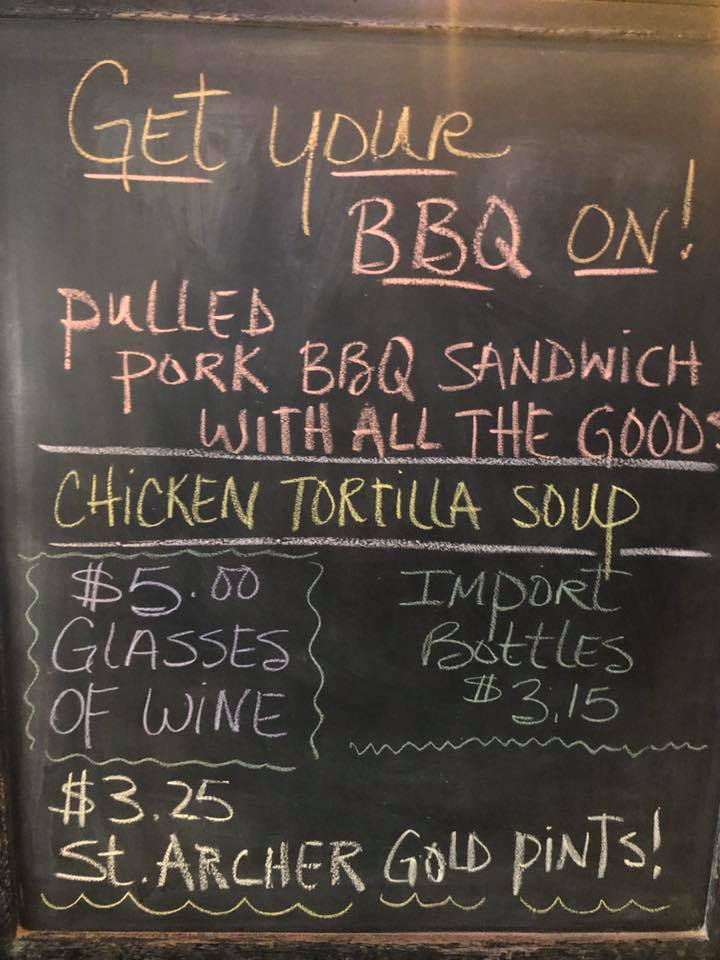 GET YOUR
BBQ ON!
PULLED
PORK BBQ SANDWICH
WITH ALL THE GOODS
CHICKEN TORTILLA SOUP
$5.00
GLASSES
OF WINE
IMPORT
BOTTLES
$3.15
$3.25
St. ARCHER GOLD PINTS!